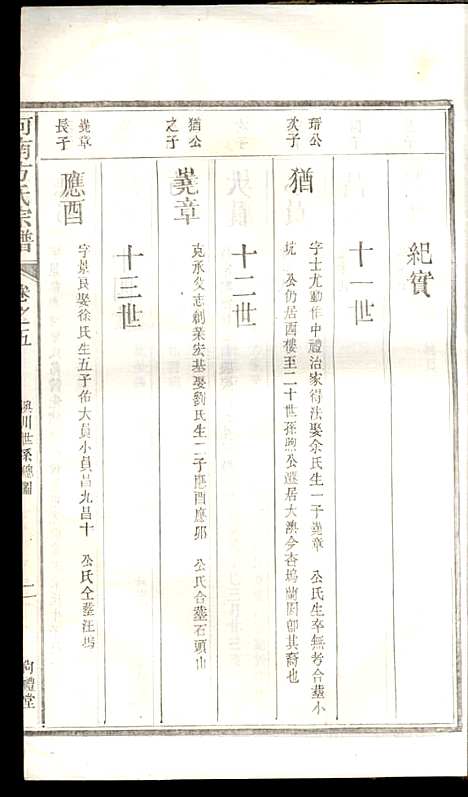 紀實
十一世
瑨公
次子
猶
字士尤動作中禮治家得法娶余氏生一子堯章 公氏生卒無考合葬小
坑 公仍居西樓至二十世孫煦公遷居大澳今杏塢蘭園郎其裔也
十二世
猶公
之子
堯章
克承父志創業宏基娶劉氏生二子應酉應卯 公氏合葬石頭山
十三世
堯章
長子
應酉
字景良娶徐氏生五子佑大員小員昌九昌十 公氏仝葬汪塢
河南方氏宗譜
卷之五
世系總圖